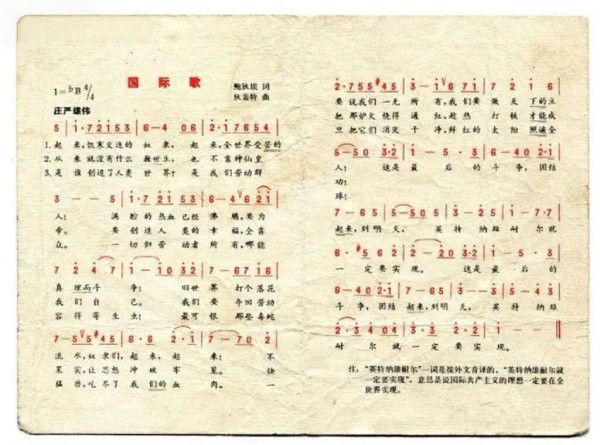 国际歌
1=ᵇB 4/4
鲍狄埃 词
狄盖特 曲
庄严雄伟
5 | 1·7 2 1 5 3 | 6－4 0 6 | 2·1 7 6 5 4 |
1.起来,饥寒交迫的 奴 来, 起 来,全世界受苦的
2.从 来就没有什么 救世主, 也 不靠神仙皇
3.是 谁创造了人类 世界? 是 我们劳动群
3－－5 | 1·7 2 1 5 3 | 6－4 6 2 1 |
人! 满 腔的热血已经 沸 腾,要为
帝。 要 创造人 类的 幸 福,全靠
众。 一 切归劳动者 所 有,哪能
7 2 4 7 | 1－1 0 3 2 | 7－6 7 1 6 |
真 理而斗 争! 旧世 界 打个落花
我 们自 己。 我们 要 夺回劳动
容 得寄生 虫! 最可 恨 那些毒蛇
7－5 5 4 5 | 6·6 2·1 | 7－7 0 2 |
流 水,奴隶们, 起 来, 起 来! 不
果 实,让思想 冲 破 牢 笼。 快
猛 兽,吃尽了 我 们的 血 肉。 一
2·7 5 5 4 5 | 3－1 6 7 1 | 7 2 1 6 |
要 说我们一 无 所 有,我们 要 做 天 下的主
把 那炉火 烧得 通 红,趁热 打 铁 才能成
旦 把它们 消灭 干 净,鲜红 的 太 阳 照遍全
5－5 0 3·2 | 1－5 3 | 6－4 0 2·1 |
人! 这是 最 后 的 斗 争,团结
功!
球!
7－6 5 | 5－5 0 5 | 3－2 5 | 1－7·7 |
起来,到明 天, 英 特纳雄 耐尔就
6·5 6 2 | 2－0 3·2 | 1－5 3 |
一 定要实 现。 这是 最 后的
6－4 0 2·1 | 7－6 5 | 3－－5 | 5－4 3 |
斗 争,团结 起来,到明 天, 英 特纳雄
2·3 4 0 4 | 3 3 2 2 | 1－1 0 |
耐 尔 就 一 定 要 实 现。
注:“英特纳雄耐尔”一词是按外文音译的。“英特纳雄耐尔就
一定要实现”,意思是说国际共产主义的理想一定要在全
世界实现。